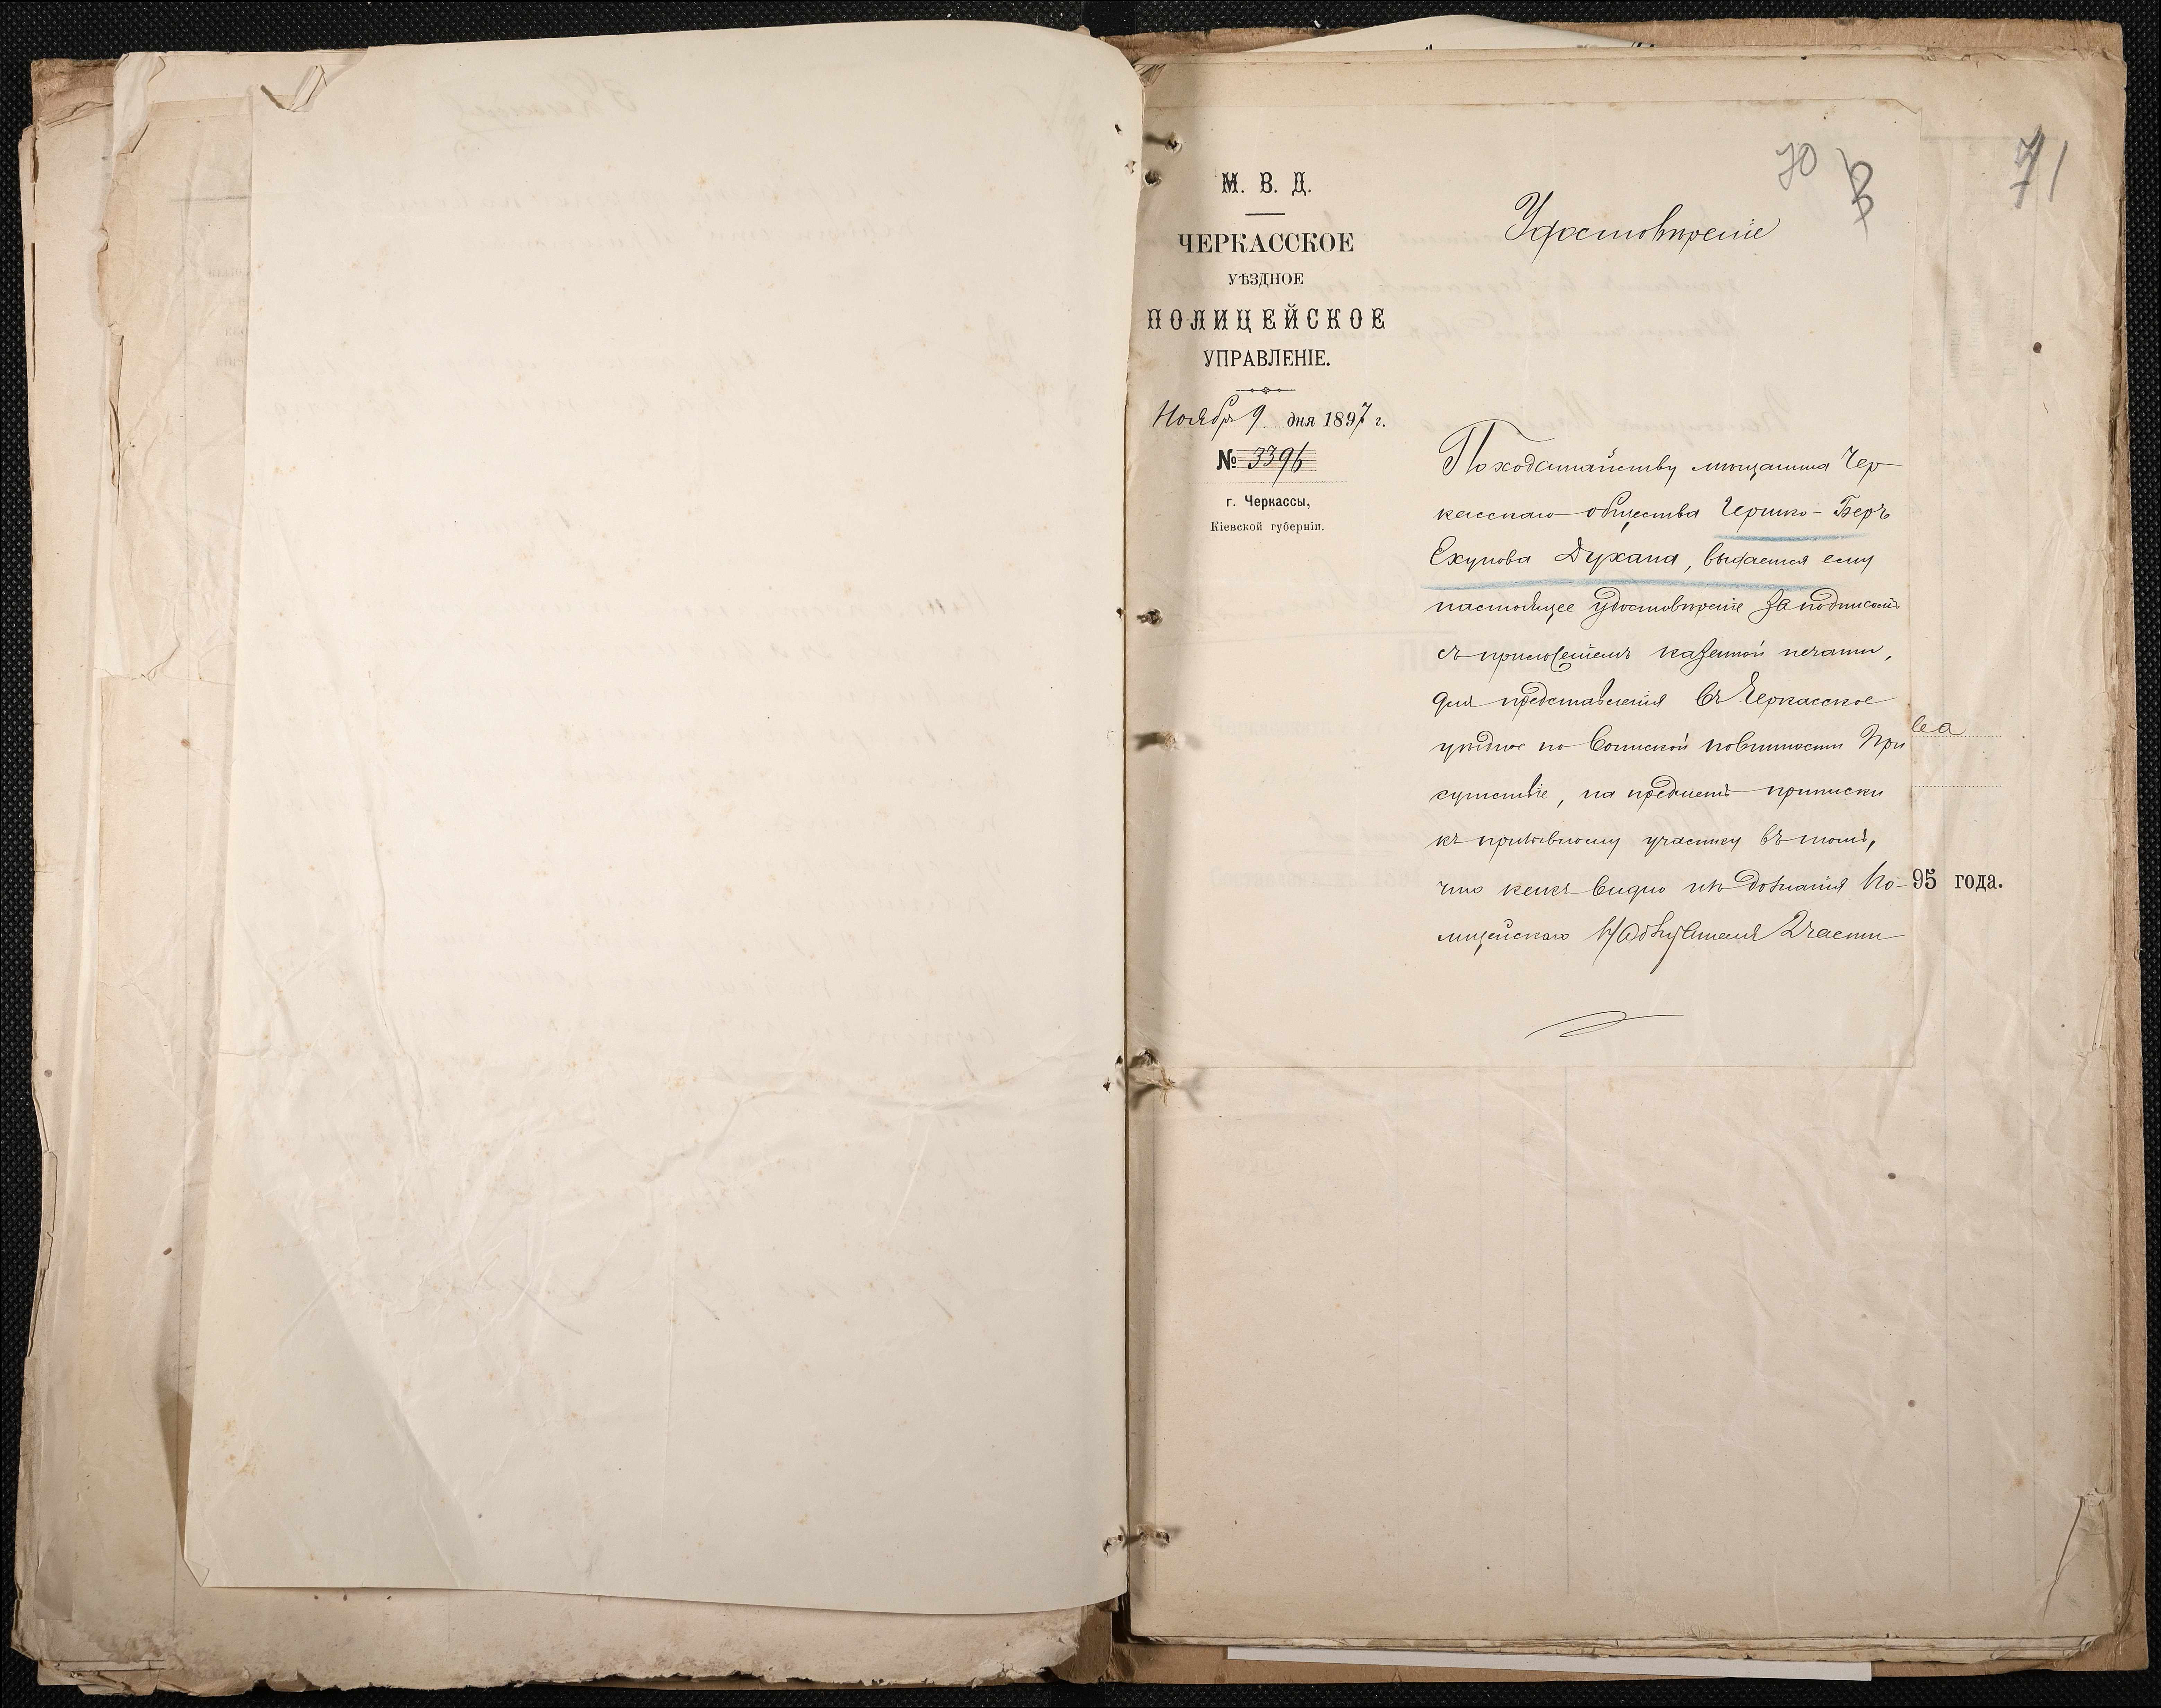 70
71
М. В. Д.
ЧЕРКАССКОЕ
УѢЗДНОЕ
ПОЛИЦЕЙСКОЕ
УПРАВЛЕНІЕ.
Ноября 9 дня 1897 г.
№ 3396
г. Черкассы,
Кіевской губерніи.
Удостовѣреніе
По ходатайству мѣщанина Чер
касскаго общества Гершко-Беръ
Екупова Духана, выдается ему
настоящее удостовѣреніе за подписомъ
съ приложеніемъ казенной печати,
для представленія въ Черкасское
уѣздное по воинской повинности При
сутствіе, на предметъ приписки
къ призывному участку въ томъ,
что какъ видно изъ дознанія По-
лицейскаго Надзирателя 2 части
ва
95 года.